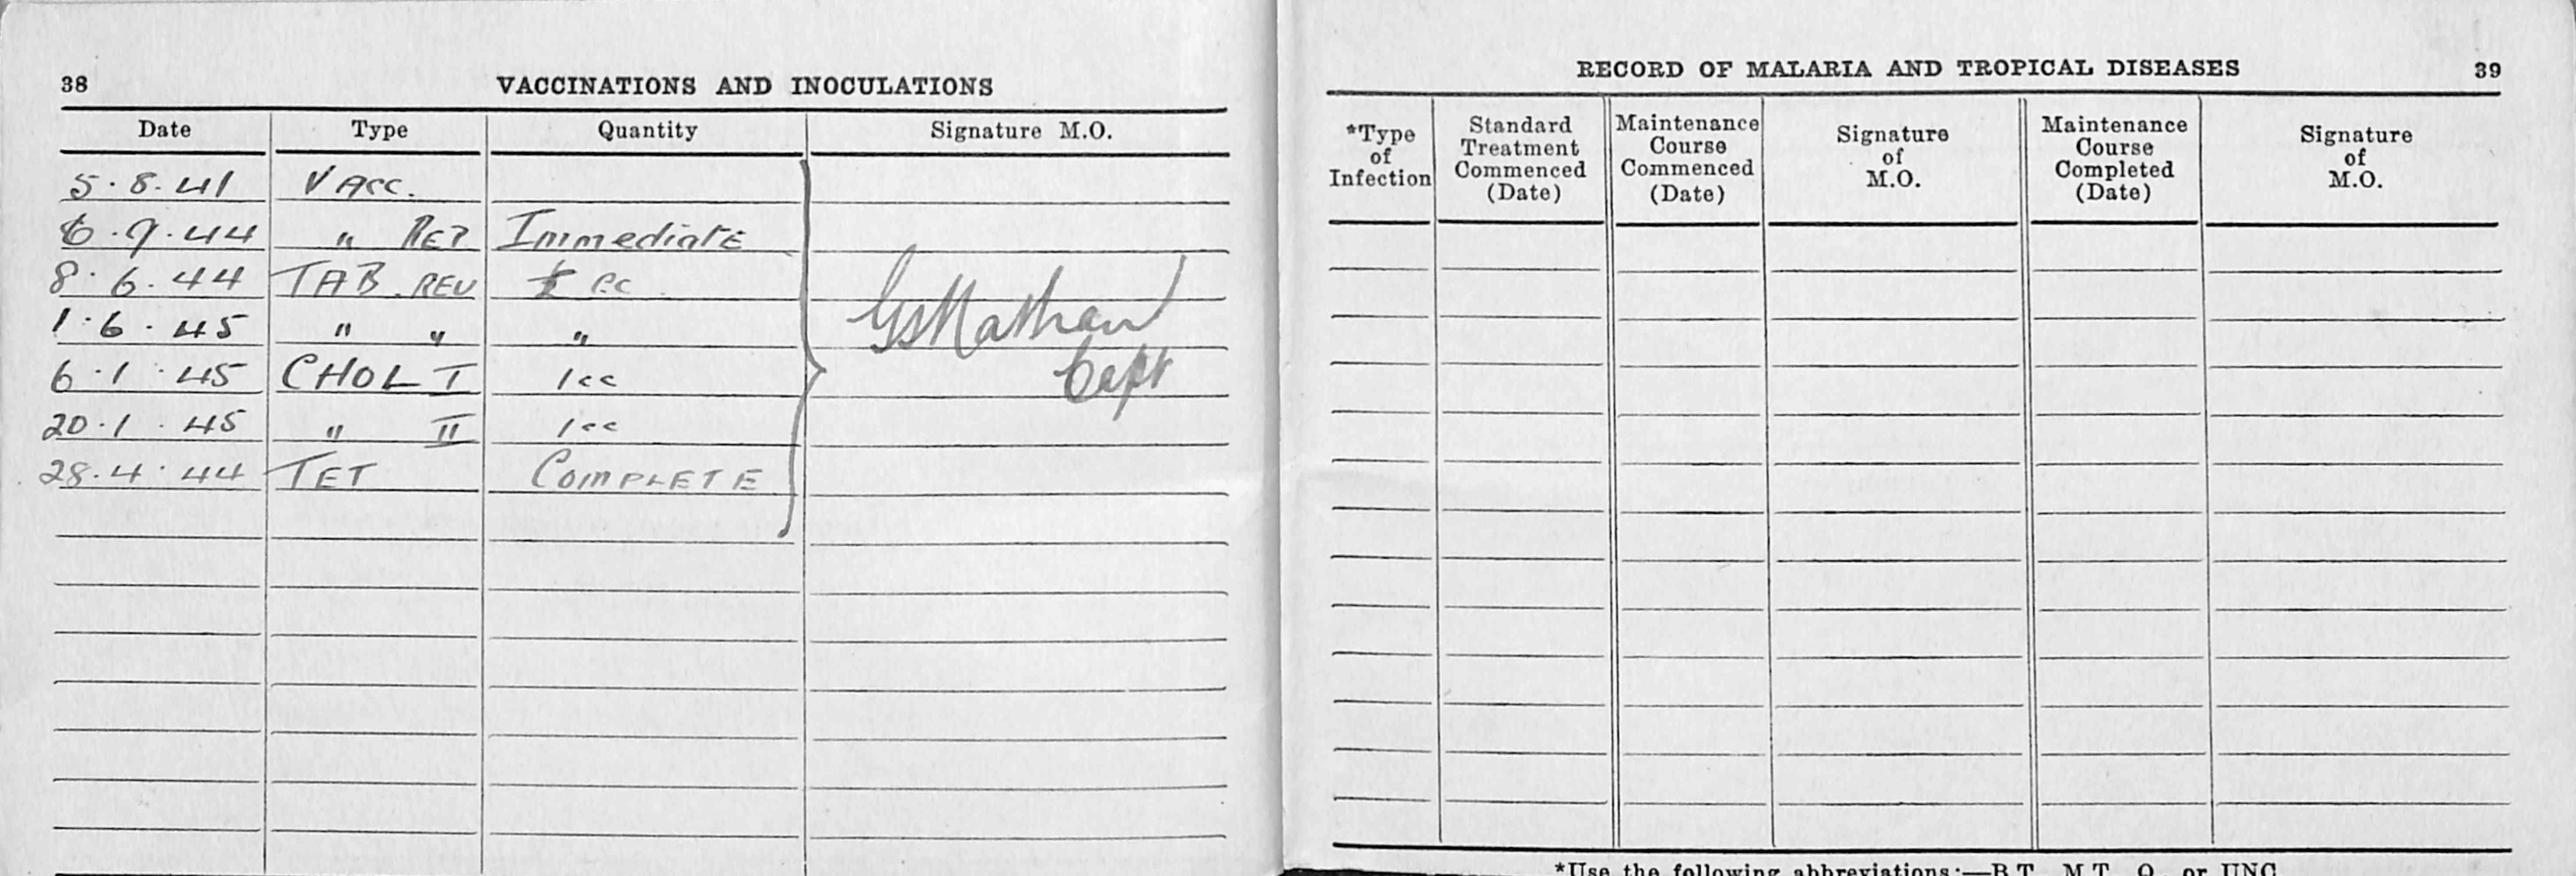 38 VACCINATIONS AND INOCULATIONS
Date Type Quantity Signature M.O.
5.8.41 VACC.
6.9.44 " Immediate
8.6.44 TAB REV cc
1.6.45 " " "
6.1.45 CHOL I 1cc
20.1.45 " II 1cc
28.4.44 TET COMPLETE
Capt
RECORD OF MALARIA AND TROPICAL DISEASES 39
*Type of Infection
Standard Treatment Commenced (Date)
Maintenance Course Commenced (Date)
Signature of M.O.
Maintenance Course Completed (Date)
Signature of M.O.
*Use the following abbreviations:—B.T. M.T. Q. or UNC